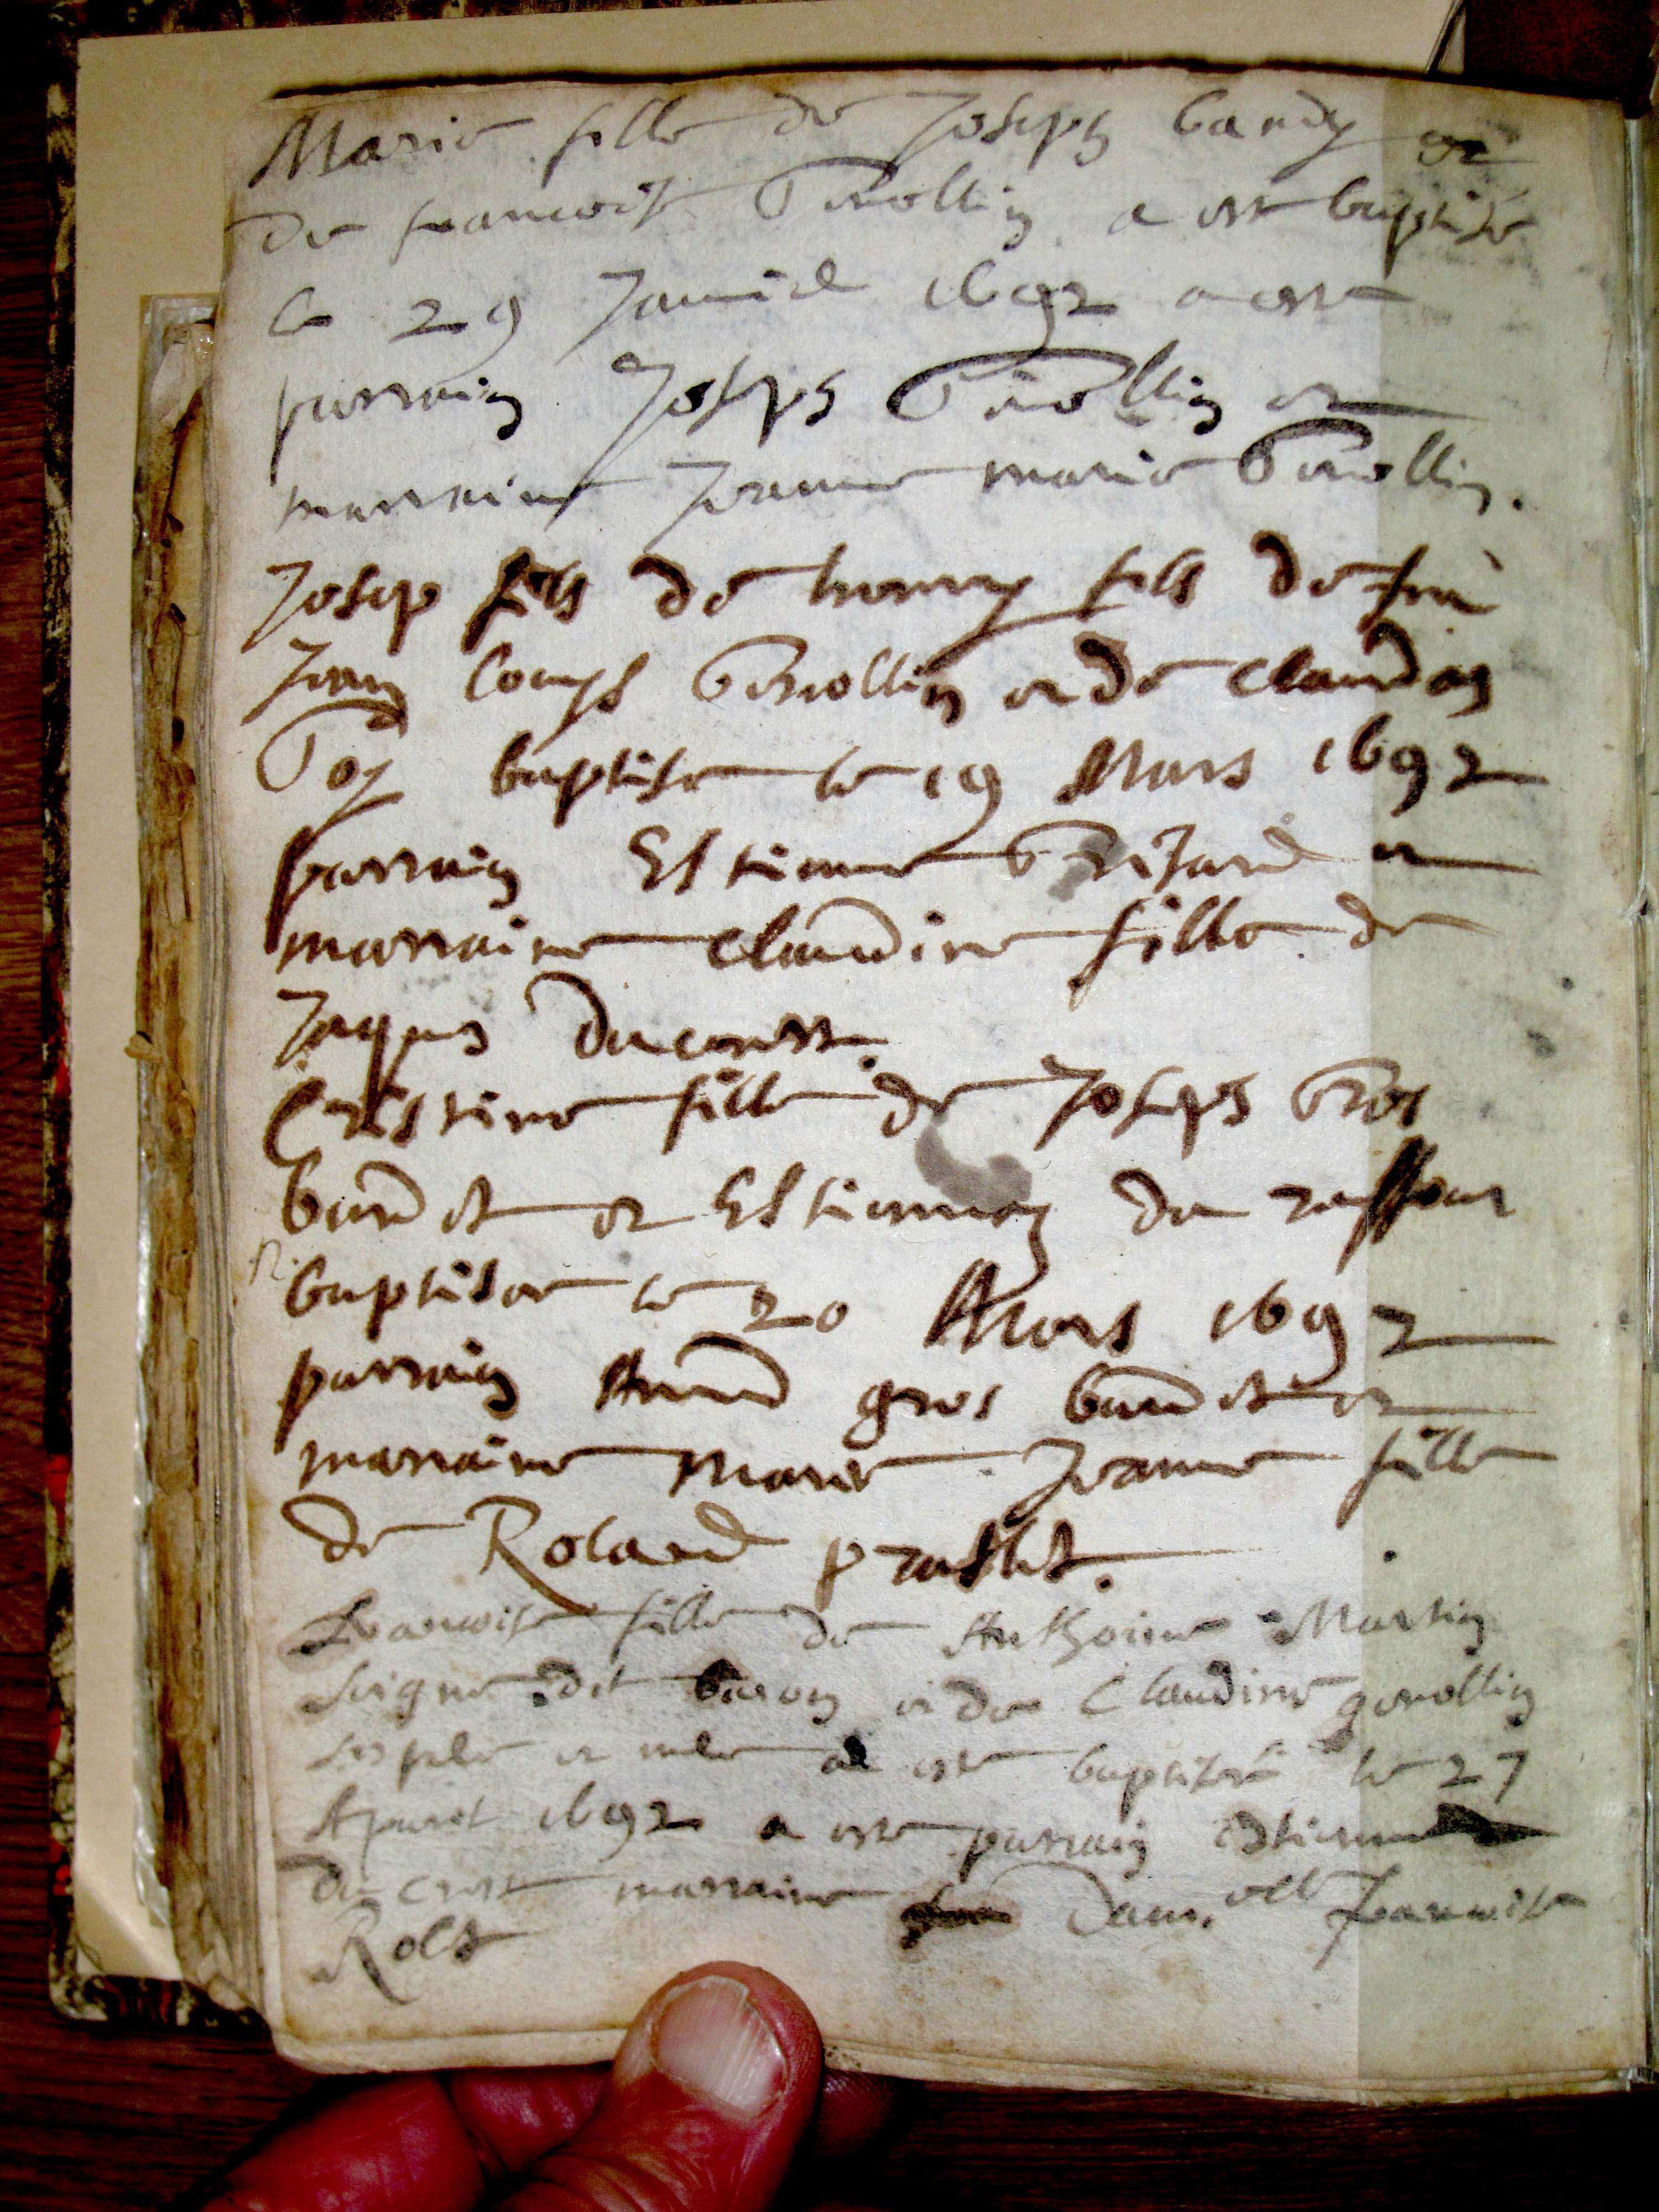 Marie fille de Joseph bandy et
de francoise Perollin a este baptisee
le 29 Janvier 1692 a este
parrain Joseph Perollin et
marraine Jeanne marie Perollin.
Josep fils de henry fils de feu
Jean Louys Perollin et de Claudaz
baptise le 19 Mars 1692
parrain Estienne et
marraine Claudine fille de
Jaques Ducrest.
Cristine fille de Joseph Gros
baudet et Estiennaz du
baptisee le 20 Mars 1692
parrain Amed gros baudet et
marraine Marie Jeanne fille
de Roland
francoise fille de Anthoine Martin
dit et de Claudine perollin
ses pere et mere a este baptisee le 27
1692 a este parrain estienne
du crest marraine Dam.elle francoise